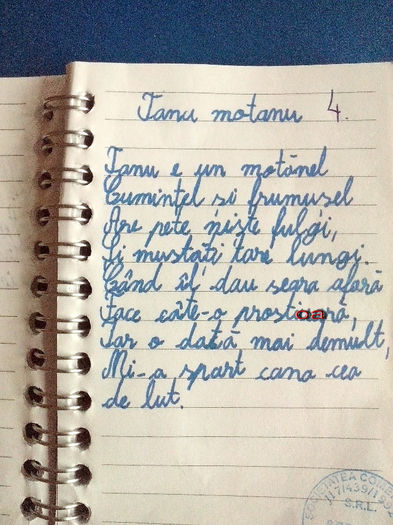 Tanu motanu 4.
Tanu e un motănel
Cumințel si frumusel
Are pete niște fulgi,
Și mustăți tare lungi.
Când îl dau seara afară
Face câte-o prostioară,
Iar o dată mai demult,
Mi-a spart cana cea
de lut.
S.R.L.